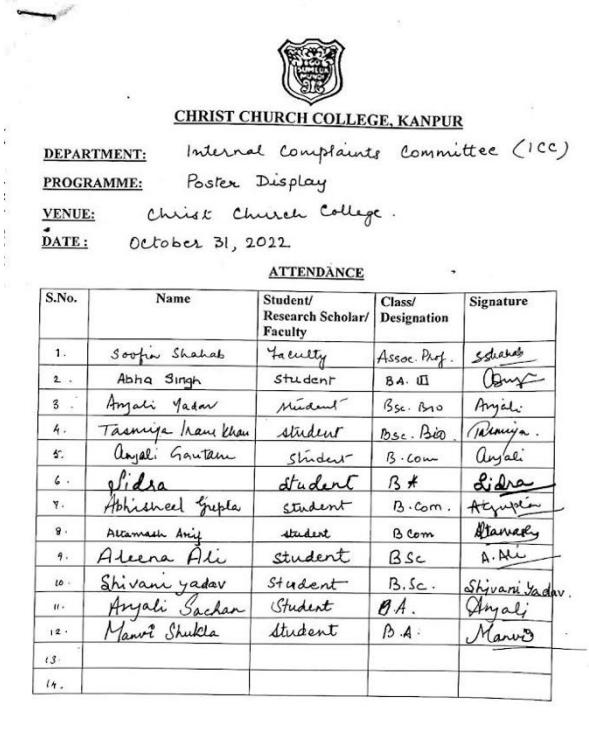 CHRIST CHURCH COLLEGE, KANPUR
DEPARTMENT: Internal Complaints Committee (ICC)
PROGRAMME: Poster Display
VENUE: Christ Church College.
DATE: October 31, 2022
ATTENDANCE
S.No. Name Student/ Research Scholar/ Faculty Class/ Designation Signature
1. Soofia Shahab Faculty Assoc. Prof. SShahab
2. Abha Singh Student BA. III
3. Anjali Yadav student Bsc. Bio Anjali
4. Tasmiya Iram Khan student Bsc. Bio Tasmiya.
5. Anjali Gautam Student B.com Anjali
6. Sidra student B Sidra
7. Abhisheel Gupta student B.Com.
8. Altamash Arif student B Com
9. Aleena Ali student BSc A. Ali
10. Shivani yadav Student B.Sc. Shivani Yadav.
11. Anjali Sachan Student B.A. Anjali
12. Manvi Shukla Student B.A. Manvi
13.
14.